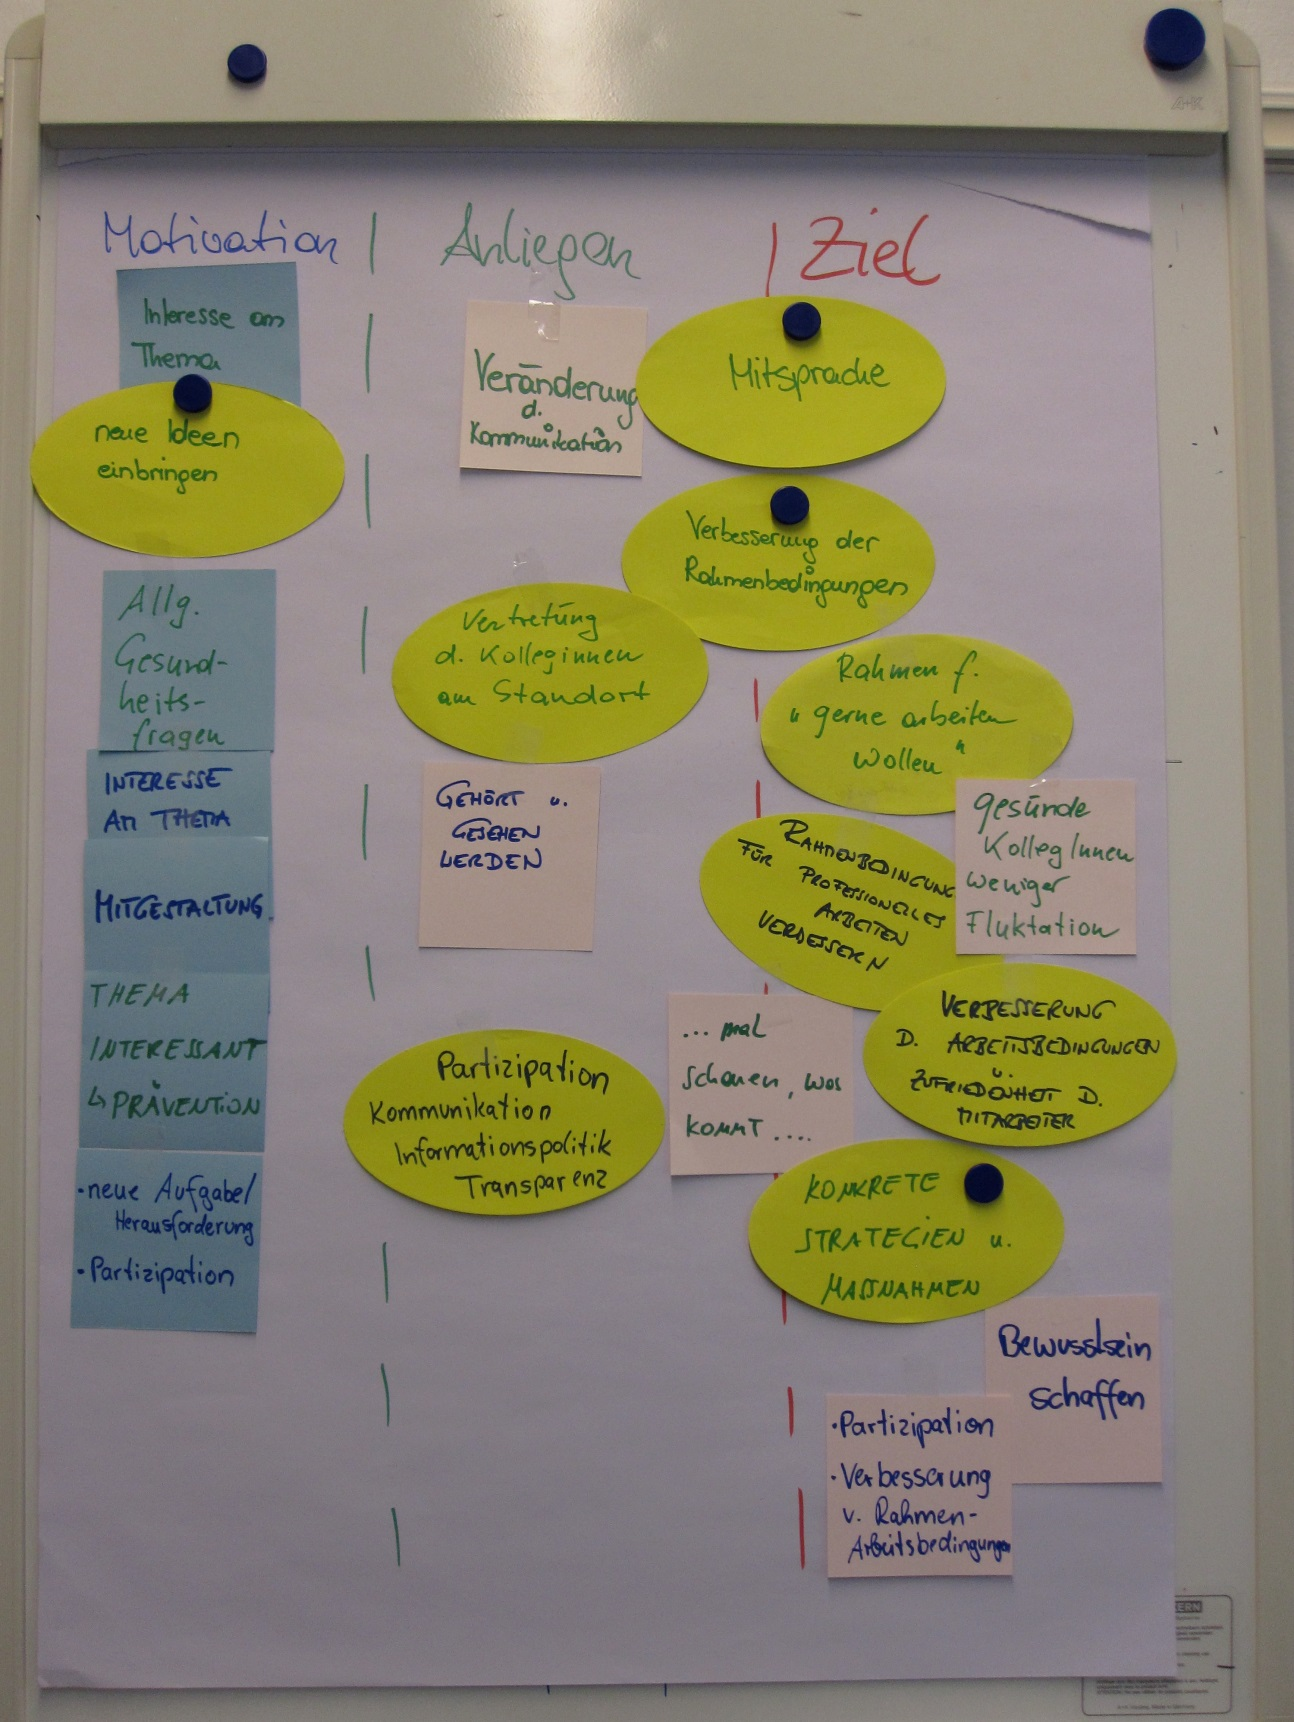 Motivation
Interesse am
Thema
neue Ideen
einbringen
Allg.
Gesund-
heits-
fragen
INTERESSE
AM THEMA
MITGESTALTUNG
THEMA
INTERESSANT
↳ PRÄVENTION
·neue Aufgabe/
Herausforderung
·Partizipation
Anliegen
Veränderung
d.
Kommunikation
Vertretung
d. Kolleginnen
am Standort
GEHÖRT u.
GESEHEN
WERDEN
Partizipation
Kommunikation
Informationspolitik
Transparenz
Ziel
Mitsprache
Verbesserung der
Rahmenbedingungen
Rahmen f.
"gerne arbeiten
wollen"
RAHMENBEDINGUNG
FÜR PROFESSIONELLES
ARBEITEN
VERBESSERN
gesunde
KollegInnen
weniger
Fluktation
VERBESSERUNG
D. ARBEITSBEDINGUNGEN
u.
ZUFRIEDENHEIT D.
MITARBEITER
... mal
schauen, was
kommt ....
KONKRETE
STRATEGIEN u.
MASSNAHMEN
Bewusstsein
schaffen
·Partizipation
·Verbesserung
v. Rahmen-
Arbeitsbedingungen